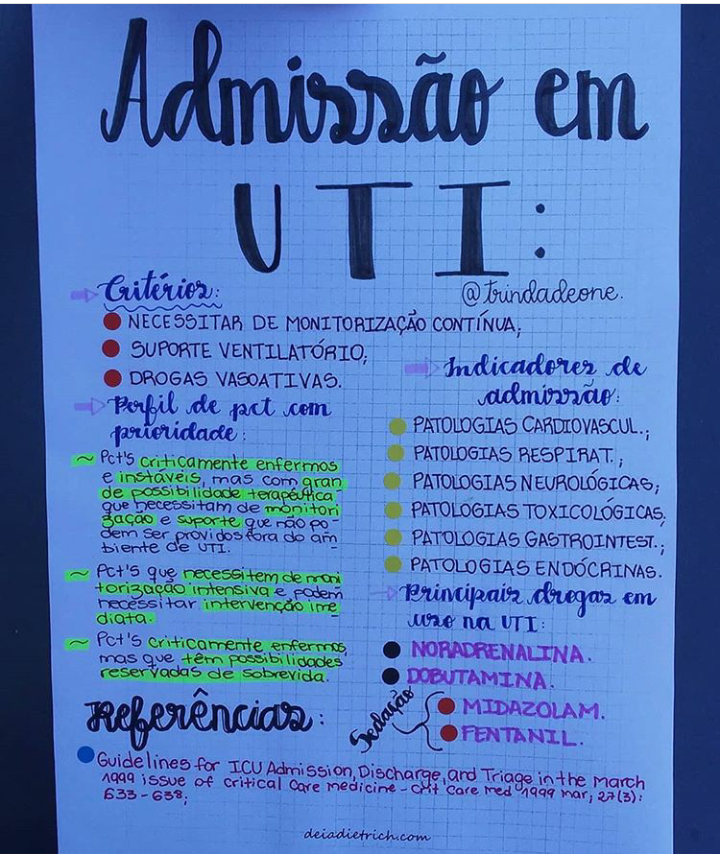 Admissão em
UTI:
@trindadeone.
Critérios:
NECESSITAR DE MONITORIZAÇÃO CONTÍNUA;
SUPORTE VENTILATÓRIO;
DROGAS VASOATIVAS.
Perfil de pct com
prioridade:
~ Pct's criticamente enfermos
e instáveis, mas com gran
de possibilidade terapêutica
que necessitam de monitori
zação e suporte que não po-
dem ser providos fora do am
biente de UTI.
~ Pct's que necessitem de moni
torização intensiva e podem
necessitar intervenção ime
diata.
~ Pct's criticamente enfermos,
mas que têm possibilidades
reservadas de sobrevida.
Indicadores de
admissão:
PATOLOGIAS CARDIOVASCUL.;
PATOLOGIAS RESPIRAT.;
PATOLOGIAS NEUROLÓGICAS;
PATOLOGIAS TOXICOLÓGICAS.
PATOLOGIAS GASTROINTEST.;
PATOLOGIAS ENDÓCRINAS.
Principais drogas em
uso na UTI:
NORADRENALINA.
DOBUTAMINA.
Sedação
MIDAZOLAM.
FENTANIL.
Referências:
Guidelines for ICU Admission, Discharge, and Triage in the March
1999 issue of Critical Care medicine - Crit Care Med 1999 Mar; 27(3):
633-638;
deiadietrich.com